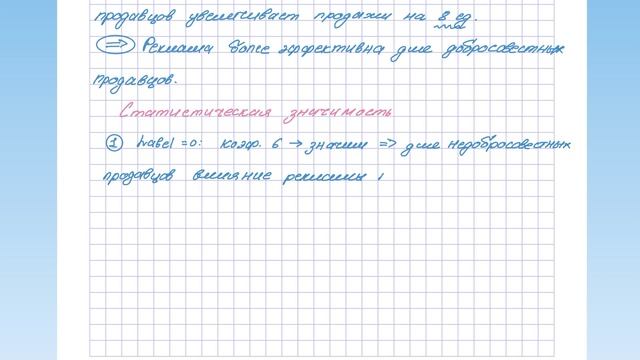 продавцов увеличивает продажи на 8 ед.
⇒ Реклама более эффективна для добросовестных
продавцов.
Статистическая значимость
① Label = 0: коэф. 6 → значим => для недобросовестных
продавцов влияние рекламы